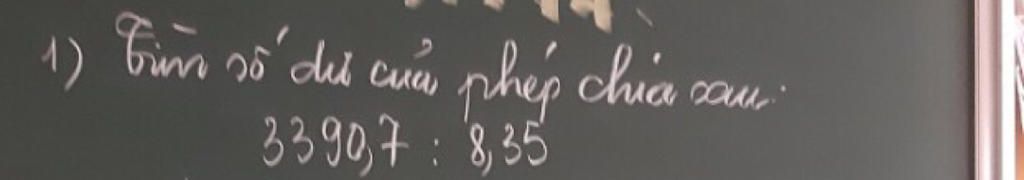 1) Tìm số dư của phép chia sau:
3390,7 : 8,35